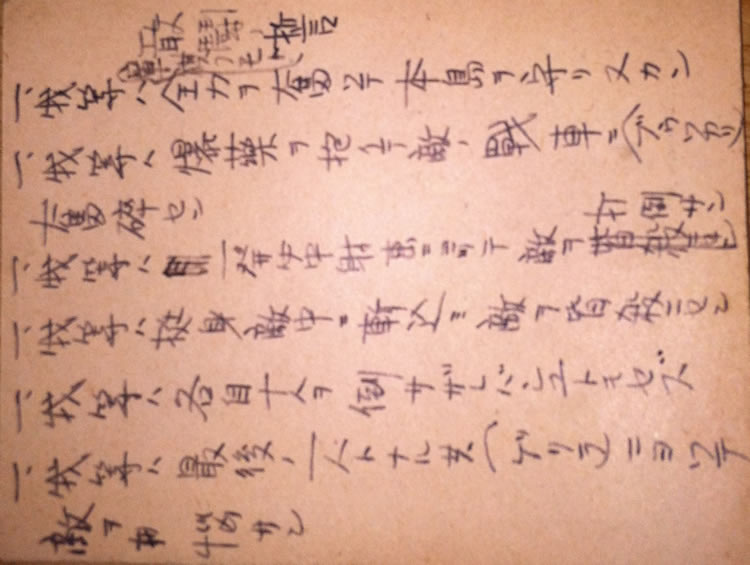 誓
一、我等ハ全力ヲ奮テ本島ヲ守リヌカン
一、我等ハ爆薬ヲ抱キテ敵ノ戦車ニ(ブツカリ)
奮砕セン
打倒サン
一、我等ハ 一発必中 射 ニヨッテ敵ヲ
一、我等ハ挺身敵中ニ斬込ミ敵ヲ皆殺ニセン
一、我等ハ各自十人ヲ倒サザレバ トモセズ
一、我等ハ最後ノ一人トナルモ(ゲリラ)ニヨッテ
敵ヲ サン